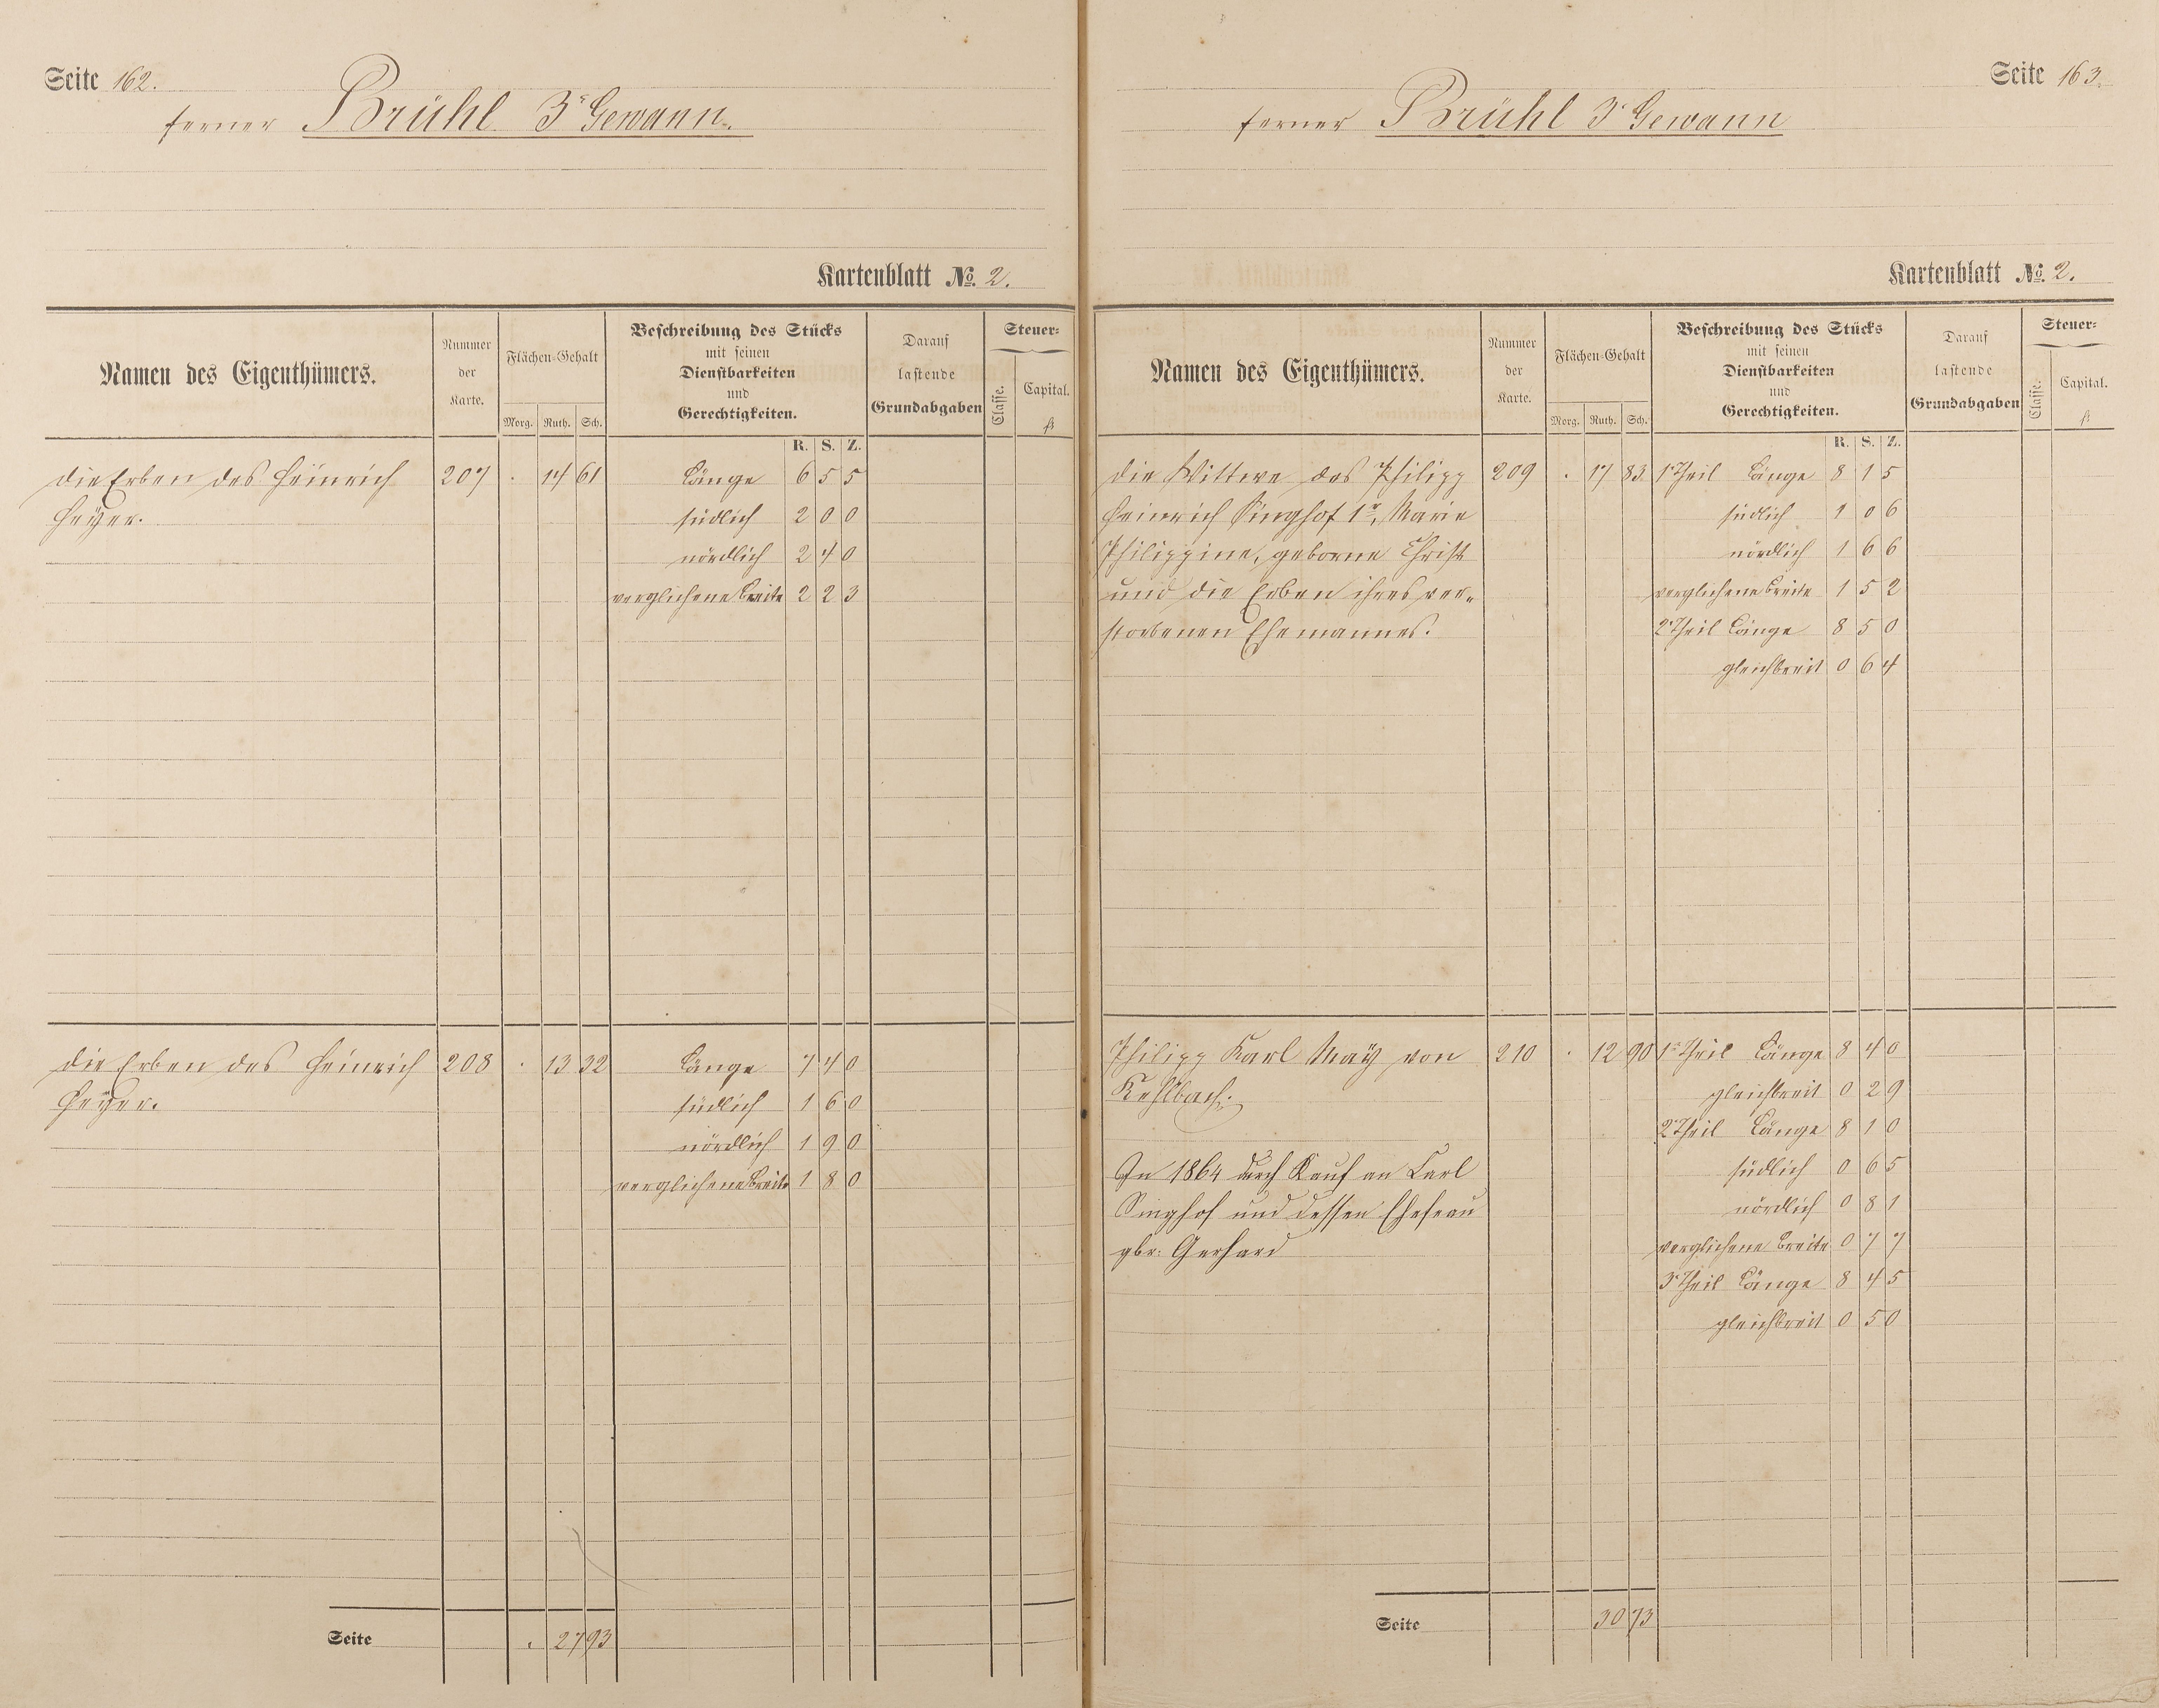 Seite 162.
ferner Brühl 3r Gewann.
Kartenblatt No. 2.
Namen des Eigenthümers. Nummer der Karte. Flächen-Gehalt Morg. Ruth. Sch. Beschreibung des Stücks mit seinen Dienstbarkeiten und Gerechtigkeiten. Darauf lastende Grundabgaben Steuer- Classe. Capital. fl
R. S. Z.
die Erben des Heinrich 207 . 14 61 Länge 6 5 5
Heÿer. südlich 2 0 0
nördlich 2 4 0
verglichene Breite 2 2 3
die Erben des Heinrich 208 . 13 32 Länge 7 4 0
Heÿer. südlich 1 6 0
nördlich 1 9 0
verglichene Breite 1 8 0
Seite . 27 93
Seite 163.
ferner Brühl 3r Gewann
Kartenblatt No. 2.
Namen des Eigenthümers. Nummer der Karte. Flächen-Gehalt Morg. Ruth. Sch. Beschreibung des Stücks mit seinen Dienstbarkeiten und Gerechtigkeiten. Darauf lastende Grundabgaben Steuer- Classe. Capital. fl
R. S. Z.
die Wittwe des Philipp 209 . 17 83 1r Theil Länge 8 1 5
Heinrich Singhof 1r, Marie südlich 1 0 6
Philippine, geborne Christ nördlich 1 6 6
und die Erben ihres ver- verglichene Breite 1 5 2
storbenen Ehemannes. 2r Theil Länge 8 5 0
gleichbreit 0 6 4
Philipp Karl Maÿ von 210 . 12 90 1r Theil Länge 8 4 0
Kehlbach. gleichbreit 0 2 9
2r Theil Länge 8 1 0
In 1864 durch Kauf an Carl südlich 0 6 5
Singhof und dessen Ehefrau nördlich 0 8 1
gbr. Gerhard verglichene Breite 0 7 7
3r Theil Länge 8 4 5
gleichbreit 0 5 0
Seite 30 73